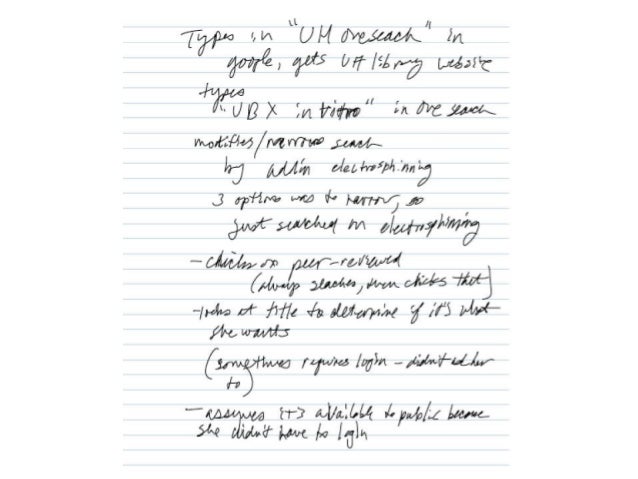 Types in "UM onesearch" in
google, gets UM library website
types
"UBX in vitro" in one search
modifies/narrows search
by addin electrosphinning
3 options was to narrow, so
just searched on electrosphinning
- clicks on peer-reviewed
(always seaches, then clicks that)
- looks at title to determine if it's what
she wants
(sometimes requires login - didn't ask her
to)
- assumes it's available to public because
she didn't have to login